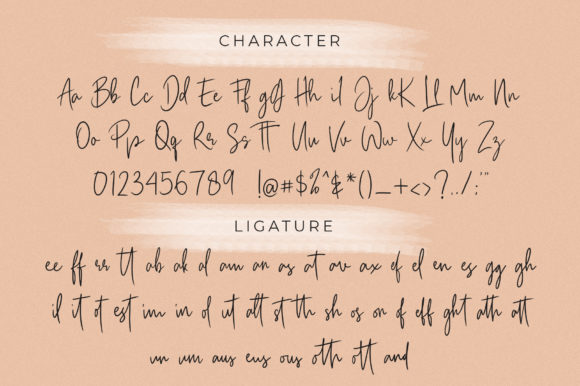 CHARACTER
Aa Bb Cc Dd Ee Ff gG Hh iI Jj kK Ll Mm Nn
Oo Pp Qq Rr Ss tT Uu Vv Ww Xx Yy Zz
0123456789 !@#$%^&*()_+<>?../:'"
LIGATURE
ee ff rr tt ab ak al am an as at av ax ef el en es gg gh
il it ot est im in ol ut att st th sh os on of eff ght ath att
un um aus eus ous oth ott and